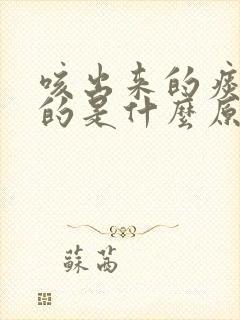 咳出来的痰
的是什麼原
蘇茜